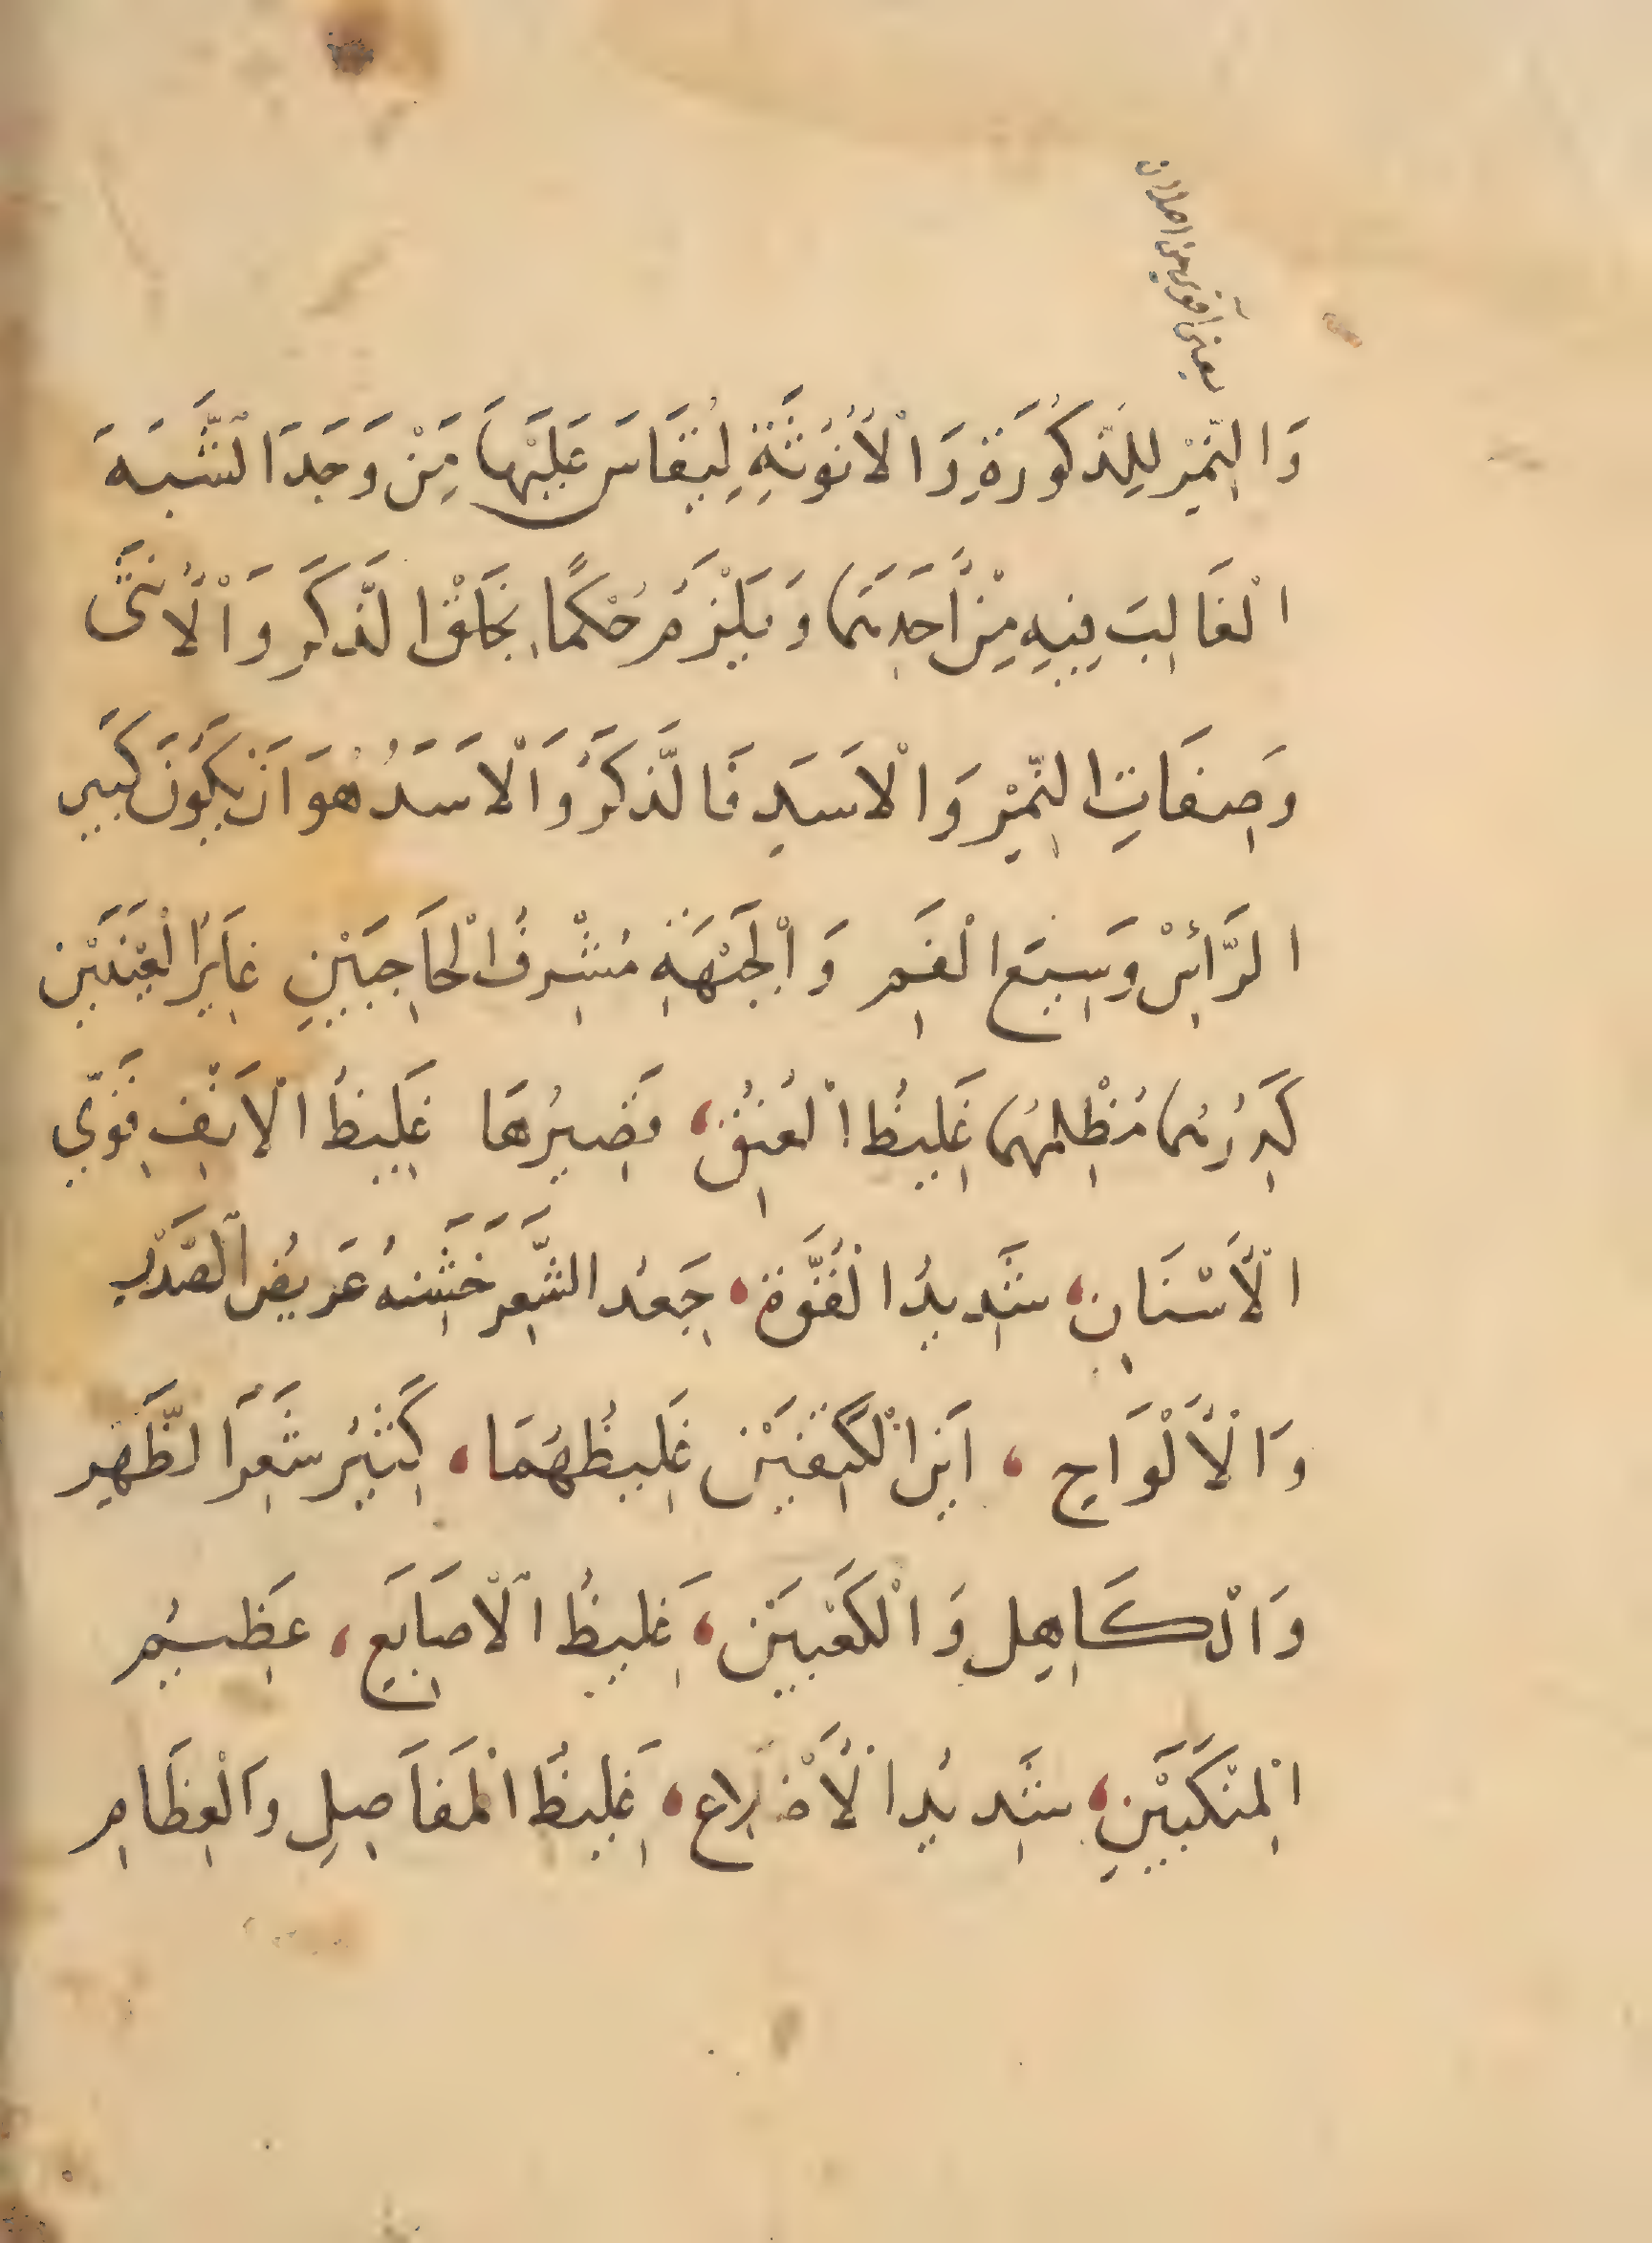 وَالنِّمْرِ لِلذُّكُورَةِ وَالْأُنُوثَةِ لِيُقَاسَ عَلَيْهَا مِنْ وَجَدَ الشَّبَهَ
الْغَالِبَ فِيهِ مِنْ أَحَدِهِمَا وَيَلْزَمَ حُكْمًا بِخَلْقِ الذَّكَرِ وَالْأُنْثَى
وَصِفَاتِ النِّمْرِ وَالْاَسَدِ فَالذَّكَرُ وَالْاَسَدُ هُوَ اَنْ يَكُونَ كَبِيرَ
الرَّائِسْ وَسِيعَ الْفَمِ وَالْجَبْهَةِ مُشْرِفُ الْحَاجِبَيْنِ غَايِرُ الْعَيْنَيْنِ
كَدِرُهُمَا مُظْلِمُهُمَا غَلِيظُ الْعُنُقِ، قَصِيرُهَا غَلِيظُ الْاَنْفِ قَوِّي
الْأَسْنَانِ، شَدِيدُ الْقُوَّةِ، جَعْدُ الشَّعَرِ خَشِنُهُ عَرِيضُ الصَّدْرِ
وَالْأَلْوَاحِ، اَبَرَّ الْكَتِفَيْنِ غَلِيظُهُمَا، كَثِيرُ شَعَرِ الظَّهْرِ
وَالْكَاهِلِ وَالْكَعْبَيْنِ، غَلِيظُ الْأَصَابِعِ، عَظِيمُ
الْمَنْكَبَيْنِ، شَدِيدُ الْأَضْلَاعِ، غَلِيظُ الْمَفَاصِلِ وَالْعِظَامِ